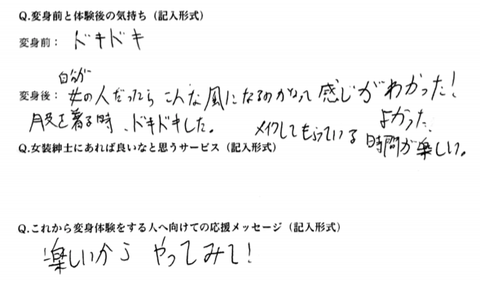 Q.変身前と体験後の気持ち（記入形式）
変身前： ドキドキ
自分が
変身後： 女の人だったら こんな風になるのかなって 感じがわかった！
服を着る時、ドキドキした。 メイクしてもらっている 時間が楽しい。
よかった
Q.女装紳士にあれば良いなと思うサービス（記入形式）
Q.これから変身体験をする人へ向けての応援メッセージ（記入形式）
楽しいから やってみて！